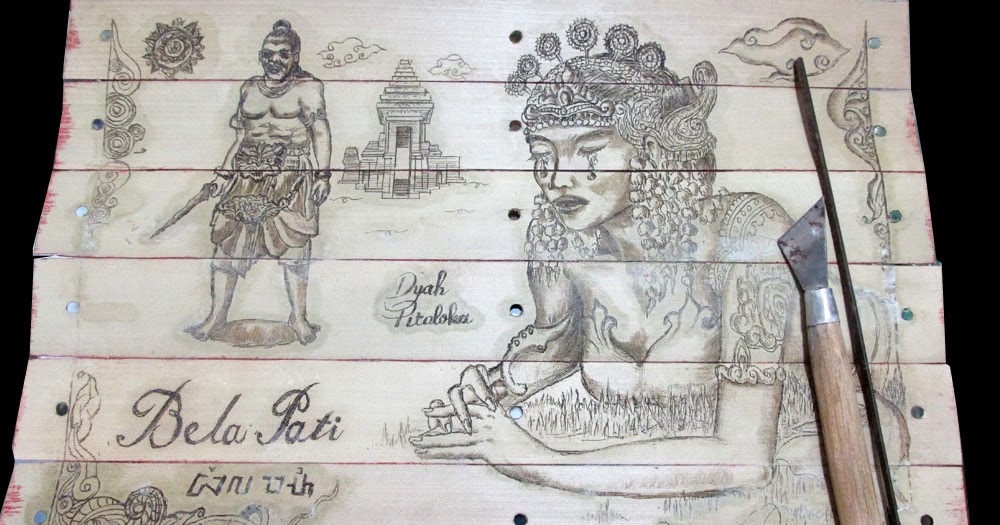 Dyah
Pitaloka
Bela Pati